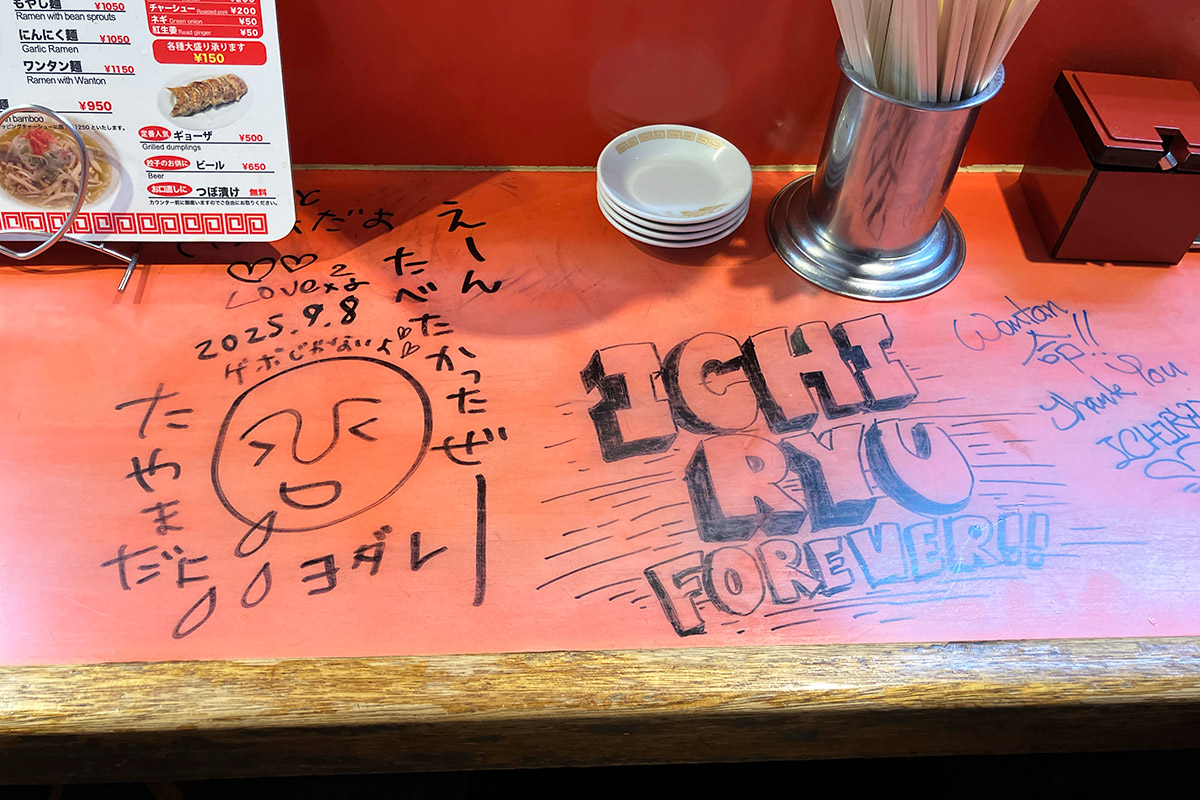 もやし麺 ¥1050
Ramen with bean sprouts
にんにく麺 ¥1050
Garlic Ramen
ワンタン麺 ¥1150
Ramen with Wanton
麺 ¥950
bamboo
チャーシュー Roasted pork ¥200
ネギ Green onion ¥50
紅生姜 Read ginger ¥50
各種大盛り承ります
¥150
定番人気 ギョーザ ¥500
Grilled dumplings
餃子のお供に ビール ¥650
Beer
お口直しに つぼ漬け 無料
カウンター前に御座いますのでご自由にお取りください。
だよ
Love×2よ
2025.9.8
ゲボじゃないよ♡
えーん
たべたかったぜー
たやまだに
ヨダレ
ICHI
RYU
FOREVER!!
Wantan
命!!
Thank You